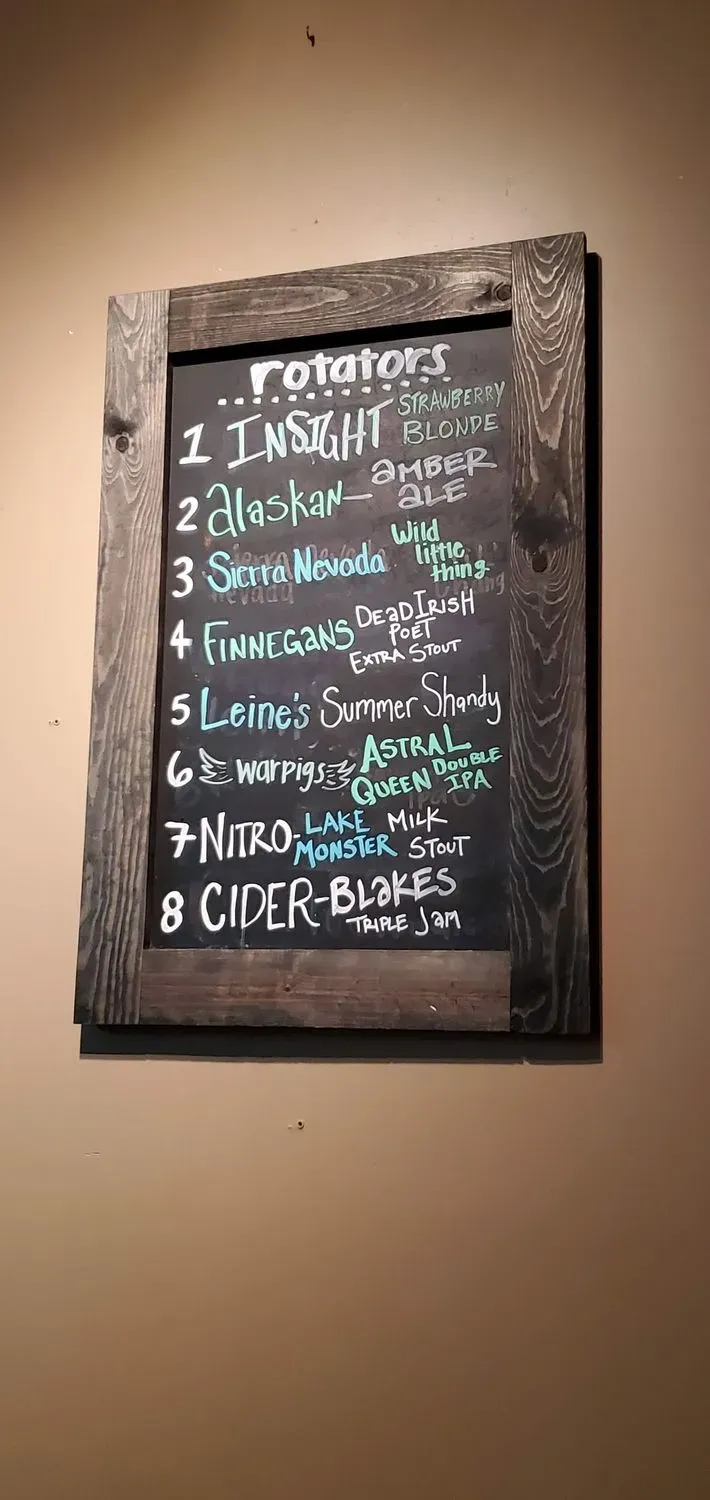 rotators
1 INSIGHT STRAWBERRY
BLONDE
2 alaskan— amber
ale
3 Sierra Nevada Wild
little
thing
4 FINNEGANS DEaD IRISH
POET
EXTRA STOUT
5 Leine's Summer Shandy
6 warpigs ASTRAL
QUEEN DOUBLE
IPA
7 NITRO- LAKE MILK
MONSTER STOUT
8 CIDER-BLaKES
TRIPLE Jam